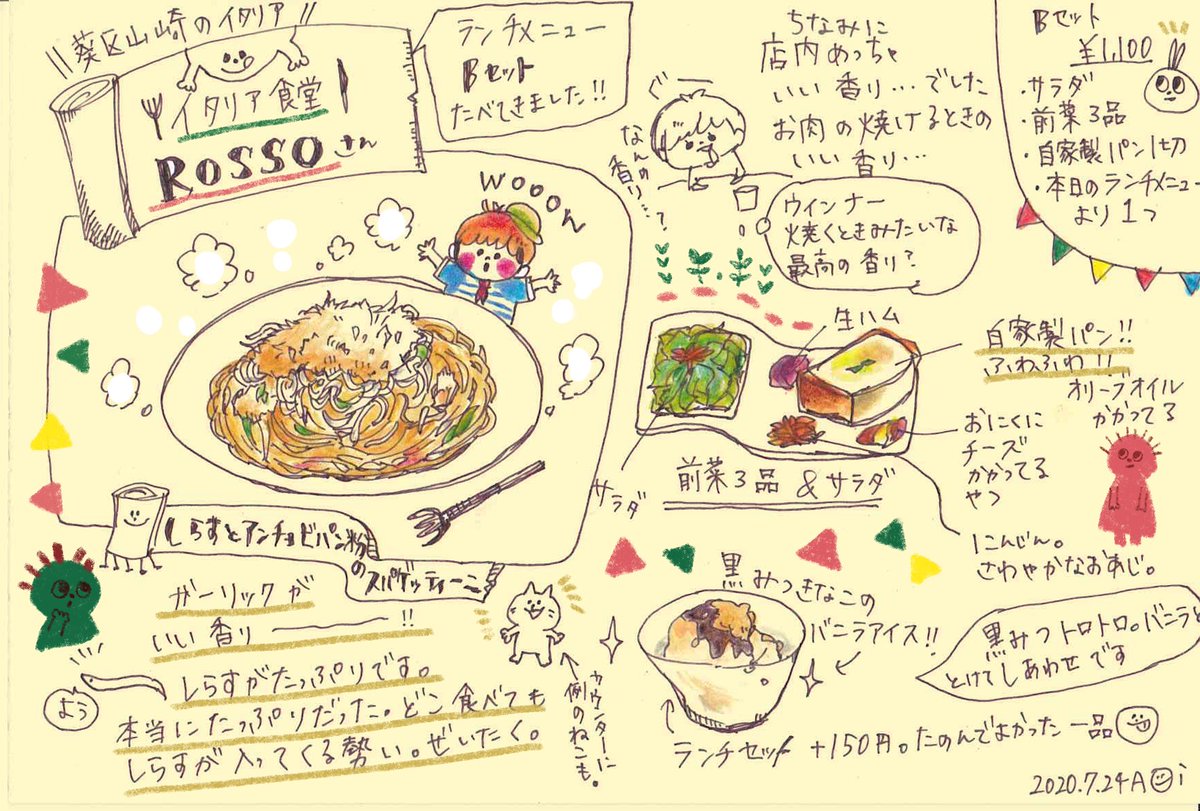 葵区山崎のイタリア!!
イタリア食堂
ROSSOさん
ランチメニュー
Bセット
たべてきました!!
ちなみに
店内めっちゃ
いい香り…でした
お肉の焼けるときの
いい香り…
ぐ〜
なんの
香り…?
ウインナー
焼くときみたいな
最高の香り?
Bセット
¥1,100
・サラダ
・前菜3品
・自家製パン1切
・本日のランチメニュー
より1つ
WOOOW
しらすとアンチョビパン粉
のスパゲッティーニ
ガーリックが
いい香りーーー!!
しらすがたっぷりです。
本当にたっぷりだった。どこ食べても
しらすが入ってくる勢い。ぜいたく。
よう
カウンターに
例のねこも。
生ハム
自家製パン!!
ふわふわ!!
オリーブオイル
かかってる
おにくに
チーズ
かかってる
やつ
にんじん。
さわやかなおあじ。
サラダ
前菜3品&サラダ
黒みつきなこの
バニラアイス!!
黒みつトロトロ。バニラ
とけてしあわせです
ランチセット +150円。たのんでよかった一品
2020.7.24 A i